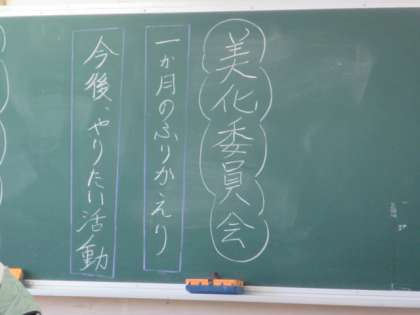 美化委員会
一か月のふりかえり
今後、やりたい活動